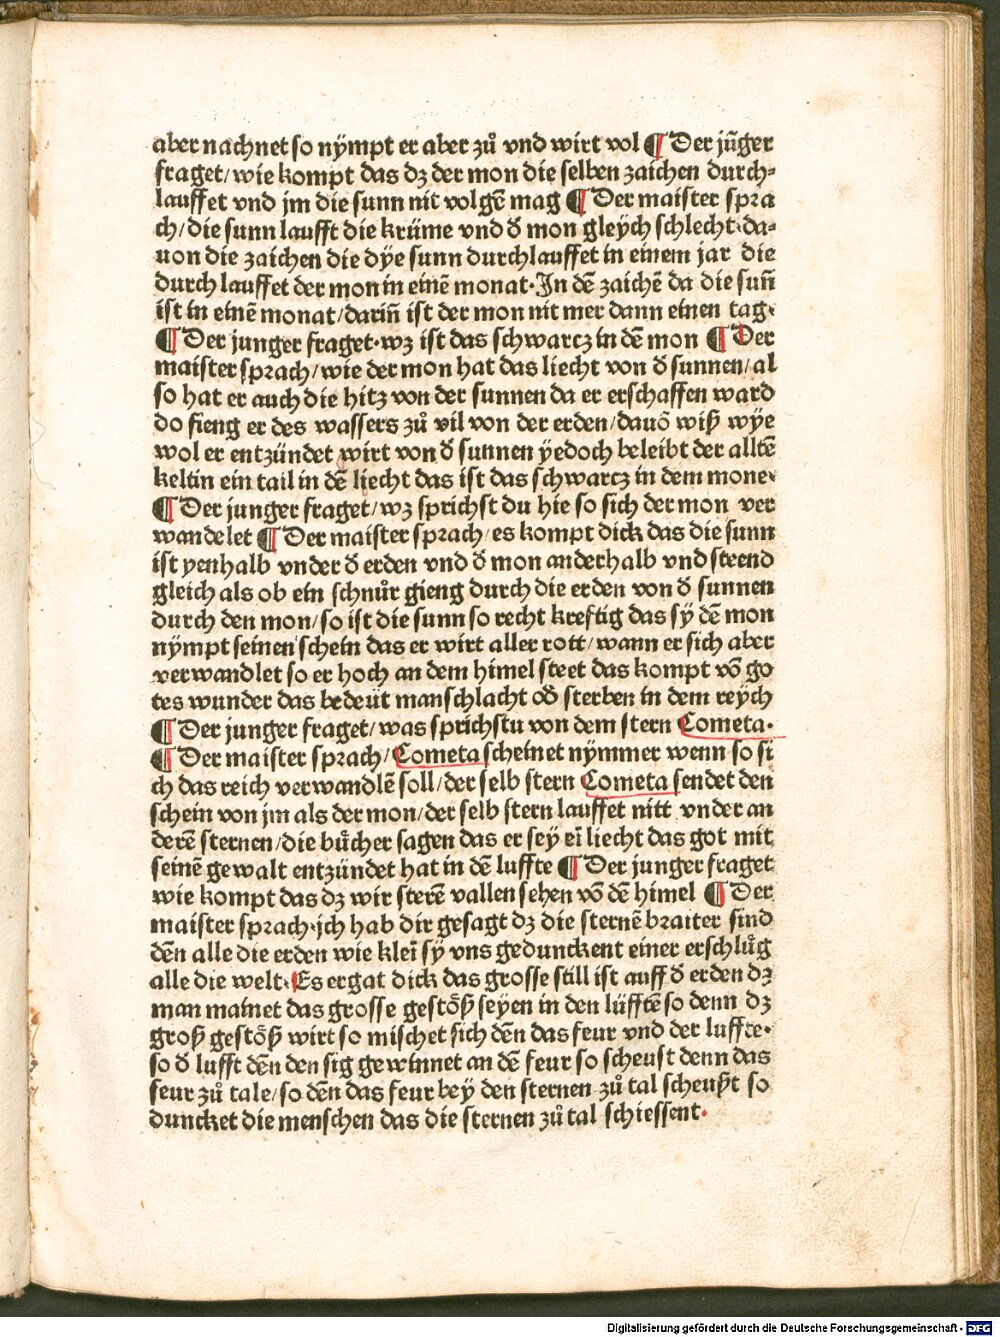 aber nachnet so nÿmpt er aber zů vnd wirt vol ¶ Der jũger
fraget/ wie kompt das dz der mon die selben zaichen durch-
lauffet vnd jm die sunn nit volgẽ mag ¶ Der maister spra
ch/ die sunn laufft die krüme vnd đ mon gleÿch schlecht· da-
uon die zaichen die dÿe sunn durchlauffet in einem jar die
durch lauffet der mon in einẽ monat· In dẽ zaichẽ da die suñ
ist in einẽ monat/ dariñ ist der mon nit mer dann einen tag·
¶ Der junger fraget· wz ist das schwartz in dẽ mon ¶ Der
maister sprach/ wie der mon hat das liecht von đ sunnen/ al
so hat er auch die hitz von der sunnen da er erschaffen ward
do fieng er des wassers zů vil von der erden/ dauõ wiß wÿe
wol er entzündet wirt von đ sunnen ÿedoch beleibt der alltẽ
keltin ein tail in dẽ liecht das ist das schwartz in dem mone·
¶ Der junger fraget/ wz sprichst du hie so sich der mon ver
wandelet ¶ Der maister sprach/ es kompt dick das die sunn
ist yenhalb vnder đ erden vnd đ mon anderhalb vnd steend
gleich als ob ein schnůr gieng durch die erden von đ sunnen
durch den mon/ so ist die sunn so recht kreftig das sÿ dẽ mon
nÿmpt seinen schein das er wirt aller rott/ wann er sich aber
verwandlet so er hoch an dem himel steet das kompt võ go
tes wunder das bedeüt manschlacht ođ sterben in dem reÿch
¶ Der junger fraget/ was sprichstu von dem stern Cometa·
¶ Der maister sprach/ Cometa scheinet nÿmmer wenn so si
ch das reich verwandlẽ soll/ der selb stern Cometa sendet den
schein von jm als der mon/ der selb stern lauffet nitt vnder an
derẽ sternen/ die bůcher sagen das er sey eĩ liecht das got mit
seinẽ gewalt entzündet hat in dẽ luffte ¶ Der junger fraget
wie kompt das dz wir sterẽ vallen sehen võ dẽ himel ¶ Der
maister sprach· ich hab dir gesagt dz die sternẽ braiter sind
dẽn alle die erden wie kleĩ sÿ vns gedunckent einer erschlůg
alle die welt· Es ergat dick das grosse still ist auff đ erden dz
man mainet das grosse gestõß seyen in den lüfftẽ so denn dz
groß gestõß wirt so mischet sich dẽn das feur vnd der luffte·
so đ lufft dẽn den sig gewinnet an dẽ feur so scheust denn das
feur zů tale/ so dẽn das feur beÿ den sternen zů tal scheußt so
duncket die menschen das die sternen zů tal schiessent·
Digitalisierung gefördert durch die Deutsche Forschungsgemeinschaft - DFG